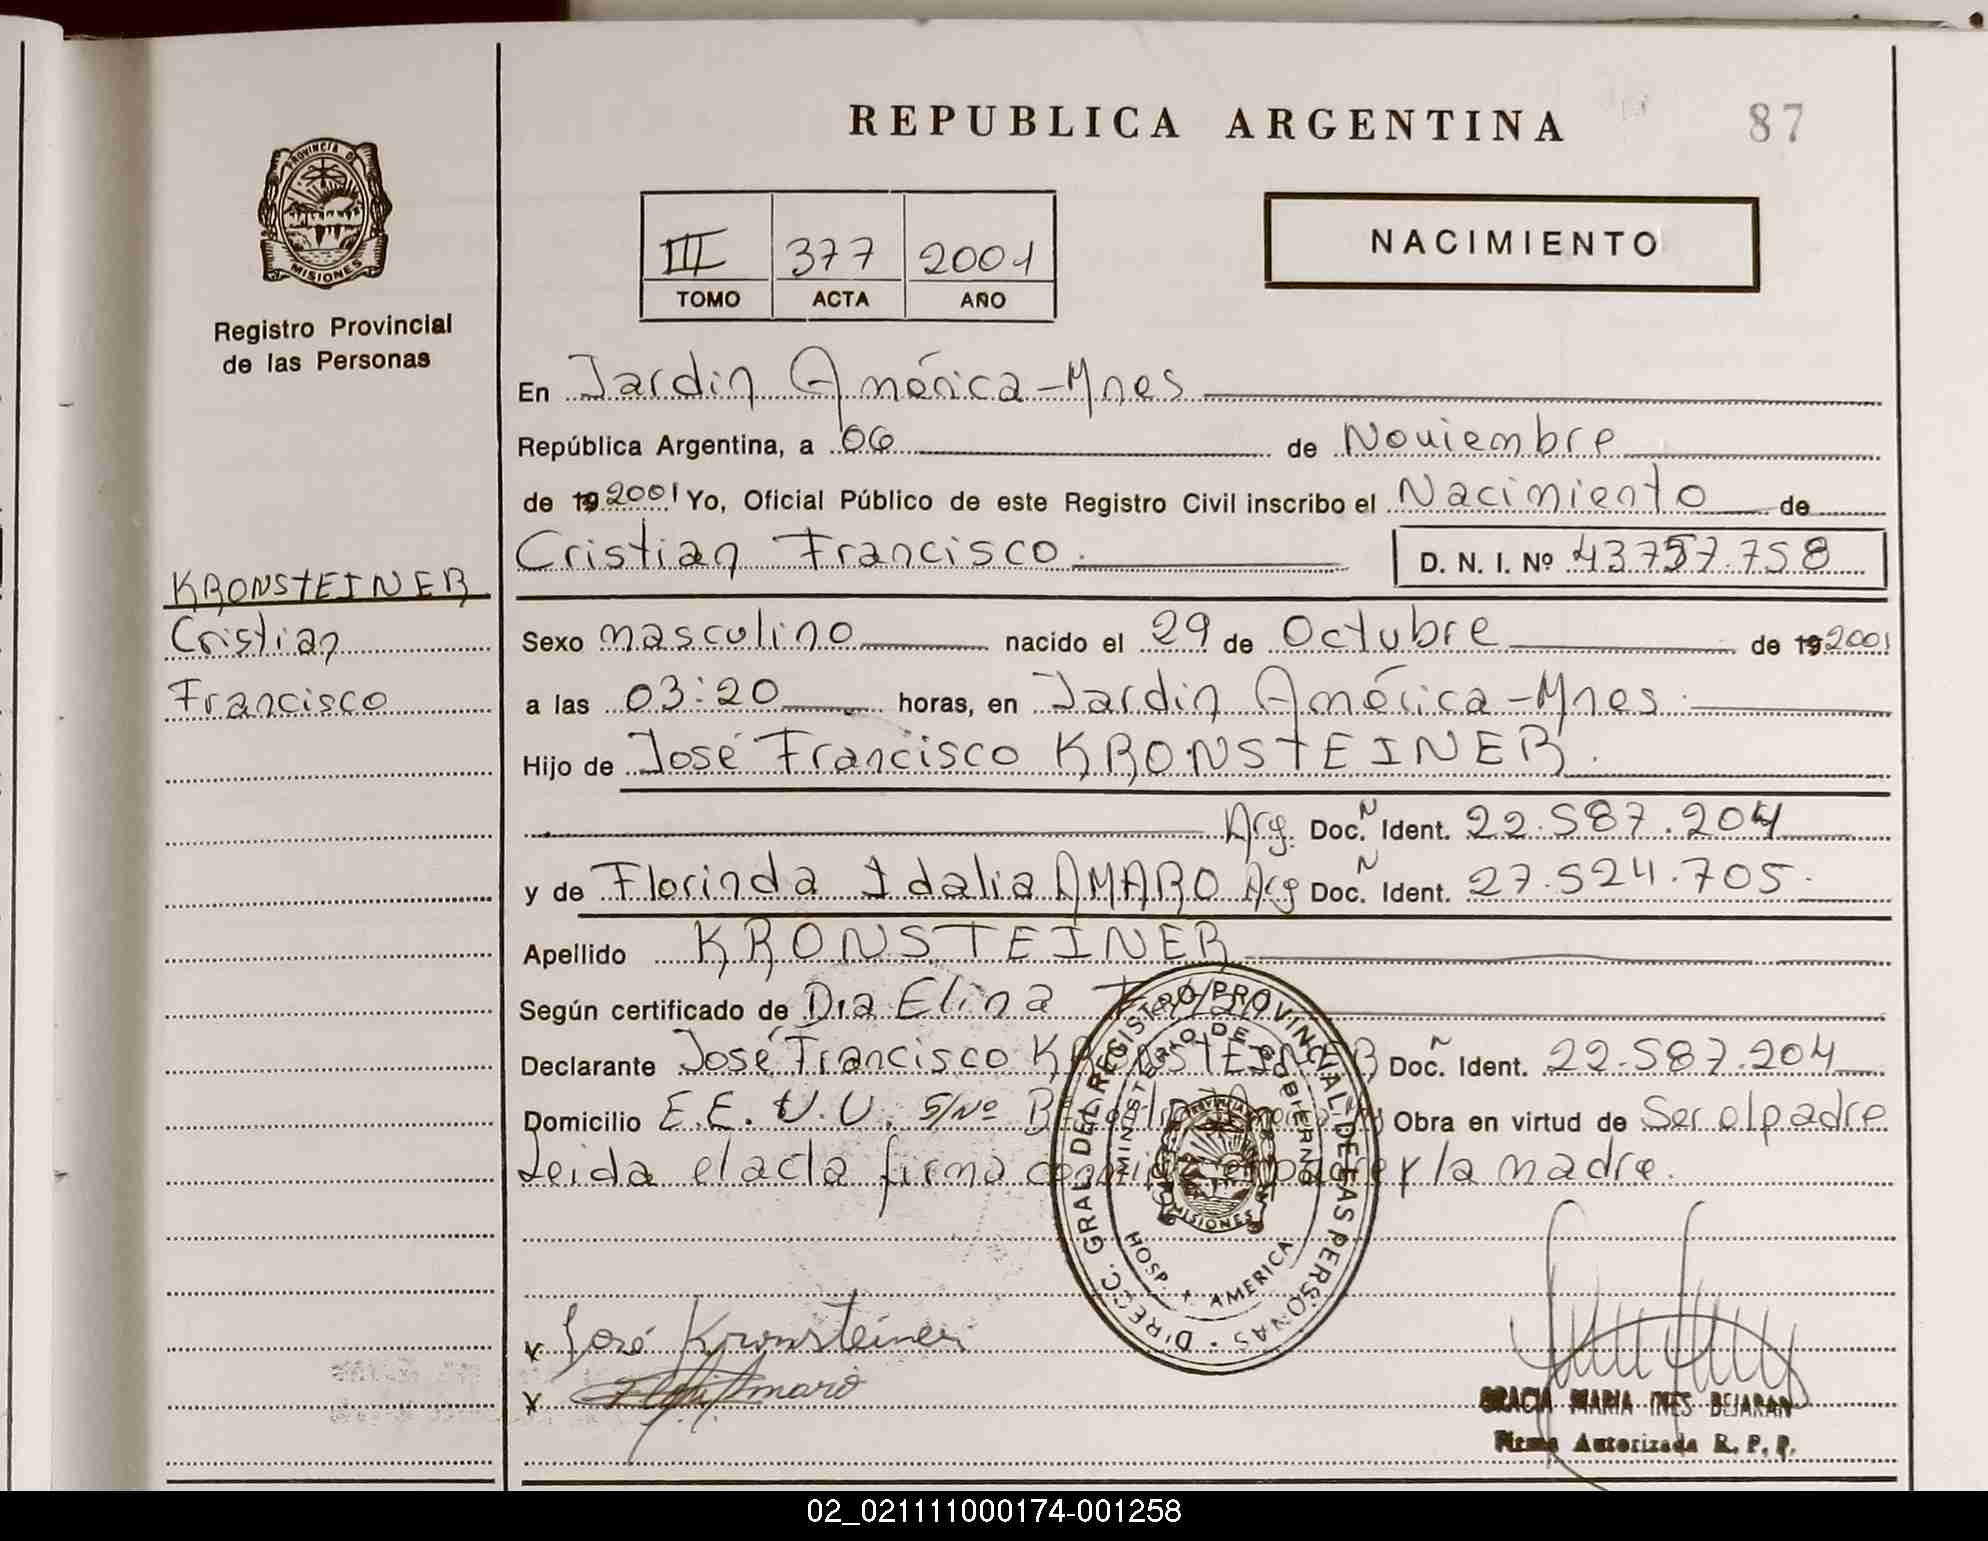 REPUBLICA ARGENTINA
87
PROVINCIA DE
MISIONES
Registro Provincial
de las Personas
III 377 2001
TOMO ACTA AÑO
NACIMIENTO
En Jardin América-Mnes
República Argentina, a 06 de Noviembre
de 19 2001 Yo, Oficial Público de este Registro Civil inscribo el Nacimiento de
Cristian Francisco. D. N. I. Nº 43.757.758
KRONSTEINER
Cristian
Francisco
Sexo masculino nacido el 29 de Octubre de 19 2001
a las 03:20 horas, en Jardin América-Mnes.
Hijo de José Francisco KRONSTEINER.
Arg. Doc. N Ident. 22.587.204
y de Florinda Idalia AMARO Arg Doc. N Ident. 27.524.705.
Apellido KRONSTEINER
Según certificado de Dra Elina
Declarante José Francisco KRONSTEINER Doc. N Ident. 22.587.204
Domicilio E.E.U.U. S/Nº Obra en virtud de Ser el padre
Leida el acta firma conmigo el padre y la madre.
DIRECC. GRAL. DEL REGISTRO PROVINCIAL DE LAS PERSONAS
MINISTERIO DE GOBIERNO
MISIONES
HOSP. X AMERICA
x José Kronsteiner
x Amaro
GRACIA MARIA INES BEJARAN
Firma Autorizada R. P. P.
02_021111000174-001258